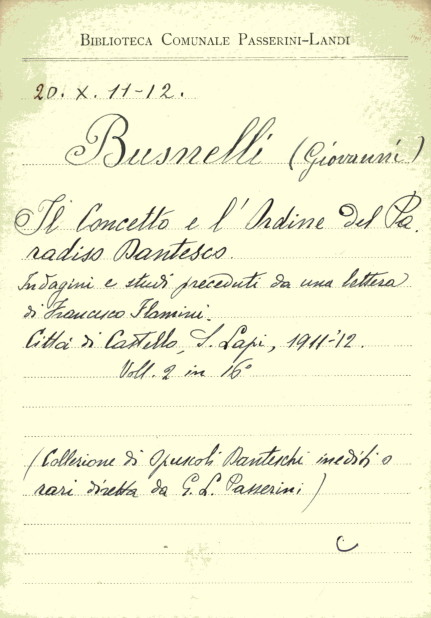 BIBLIOTECA COMUNALE PASSERINI-LANDI
20. X. 11-12.
Busnelli (Giovanni)
Il Concetto e l'Ordine del Pa.
radiso Dantesco.
Indagini e studi preceduti da una lettera
di Francesco Flamini.
Città di Castello, S. Lapi, 1911-'12.
Voll. 2 in 16°
(Collezione di Opuscoli Danteschi inediti o
rari diretta da G. L. Passerini)
C